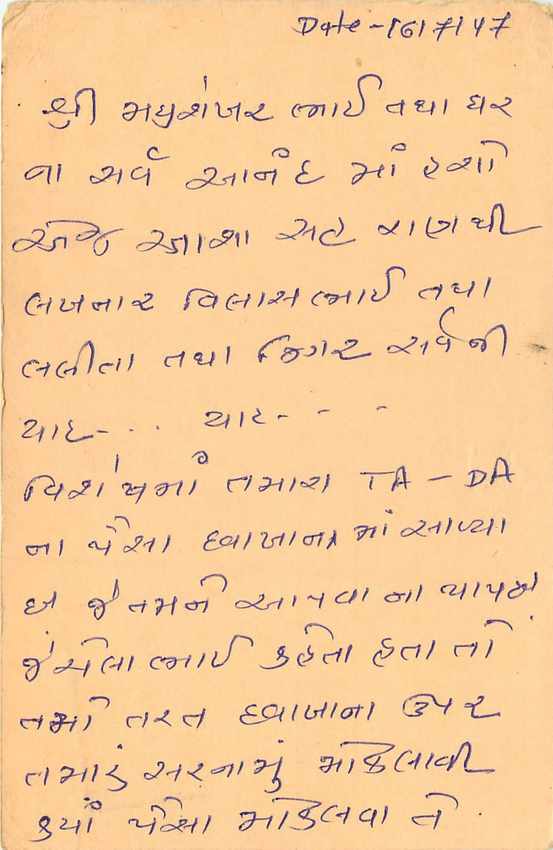 Date - 16/7/47
શ્રી મધુશંખર ભાઈ તથા ઘર
ના સર્વ આનંદ માં હશો
એજ આશા સહ રાણથી
લખનાર વિલાસભાઈ તથા
લલીતા તથા જિગર સર્વેની
યાદ - . . યાદ - - -
વિશેષમાં તમારા TA - DA
ના પૈસા દવાખાના માં આવ્યા
છે જે તમને આપવા ના
ભાઈ કહેતા હતા તો
તમો તરત દવાખાના ઉપર
તમારું સરનામું મોકલાવી
કયાં પૈસા મોકલવા તે .